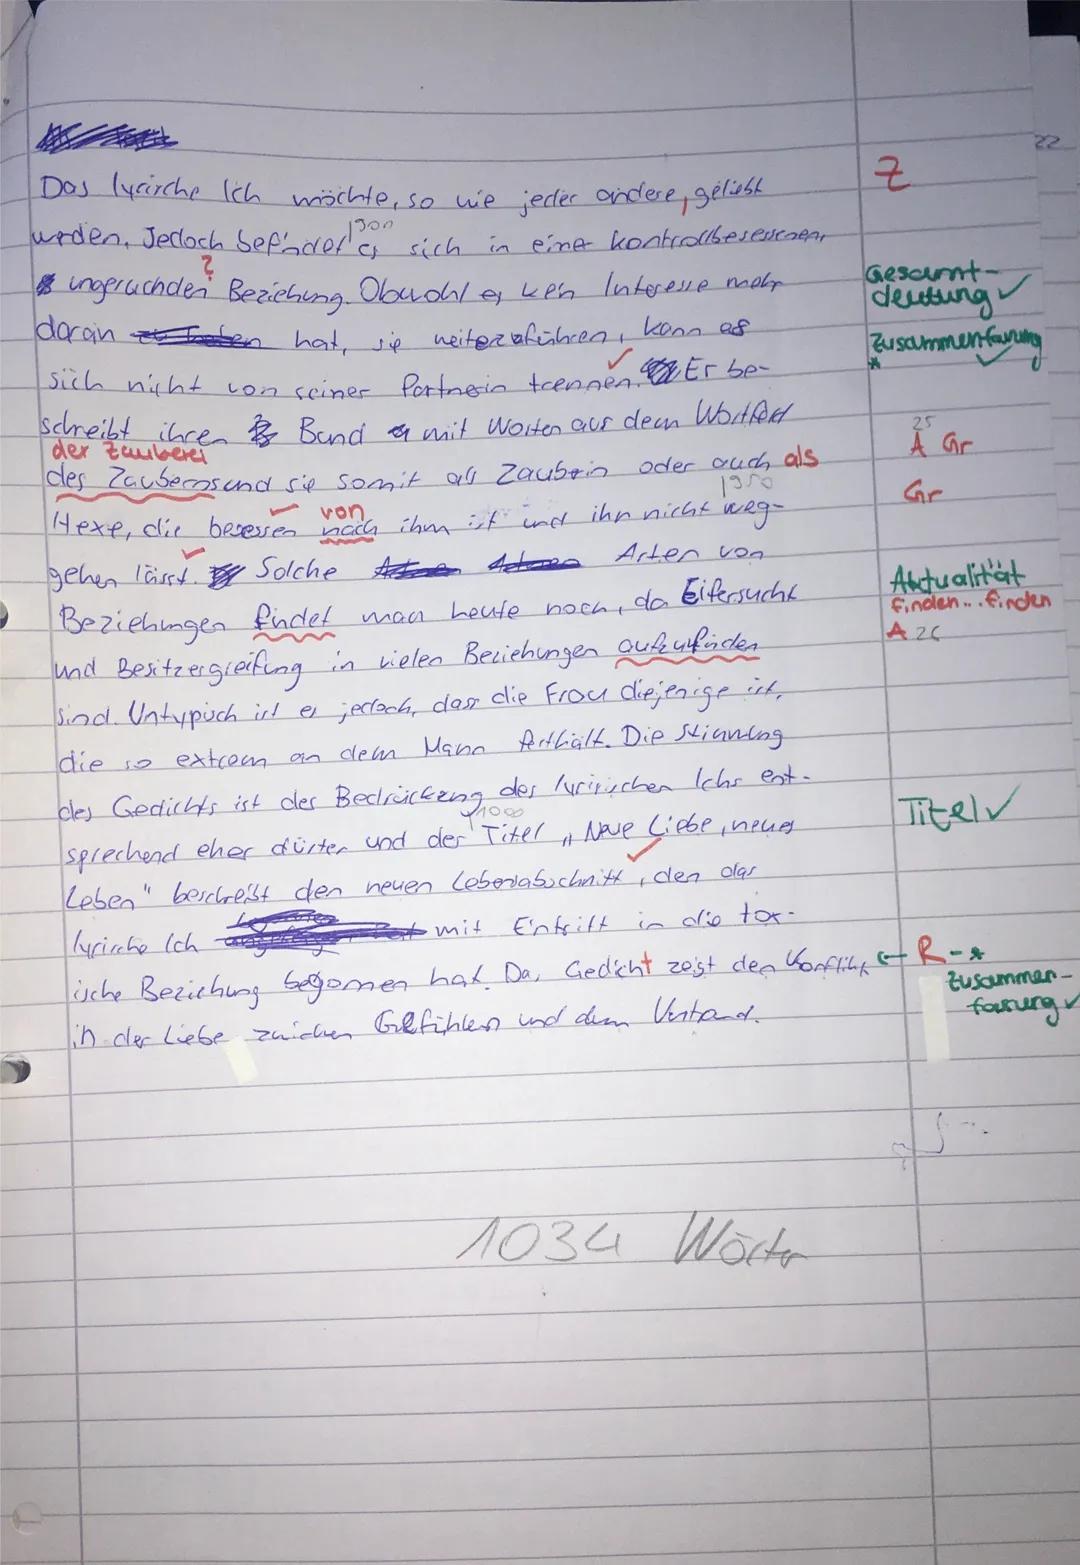 22
Das lyrische Ich möchte, so wie jeder andere, geliebt Z
werden. Jedoch befindet es sich in einer kontrollbesessenen,
?
ungeruchden Beziehung. Obwohl es kein Interesse mehr Gesamt-
deutung ✓
daran hat, sie weiterzuführen, kann es Zusammenfassung
* ✓
sich nicht von seiner Partnerin trennen. ✓ Er be-
schreibt ihren Band mit Worten aus dem Wortfeld 25
A Gr
der Zauberei
des Zauberns und sie somit als Zauberin oder auch als Gr
1950
Hexe, die besessen nach ihm ist und ihn nicht weg-
von
gehen lässt. Solche Arten von
Beziehungen findet man heute noch, da Eifersucht Aktualität
finden...finden
und Besitzergreifung in vielen Beziehungen aufzufinden A 26
sind. Untypisch ist es jedoch, dass die Frau diejenige ist,
die so extrem an dem Mann festhält. Die Stimmung
des Gedichts ist der Bedrückung des lyrischen Ichs ent-
1000
sprechend eher düster und der Titel „Neue Liebe, neues Titel ✓
Leben" beschreibt den neuen Lebensabschnitt, den das
lyrische Ich mit Eintritt in die tox-
ische Beziehung begonnen hat. Das Gedicht zeigt den Konflikt ← R - *
Zusammen-
fassung ✓
in der Liebe zwischen Gefühlen und dem Verstand.
1034 Wörter